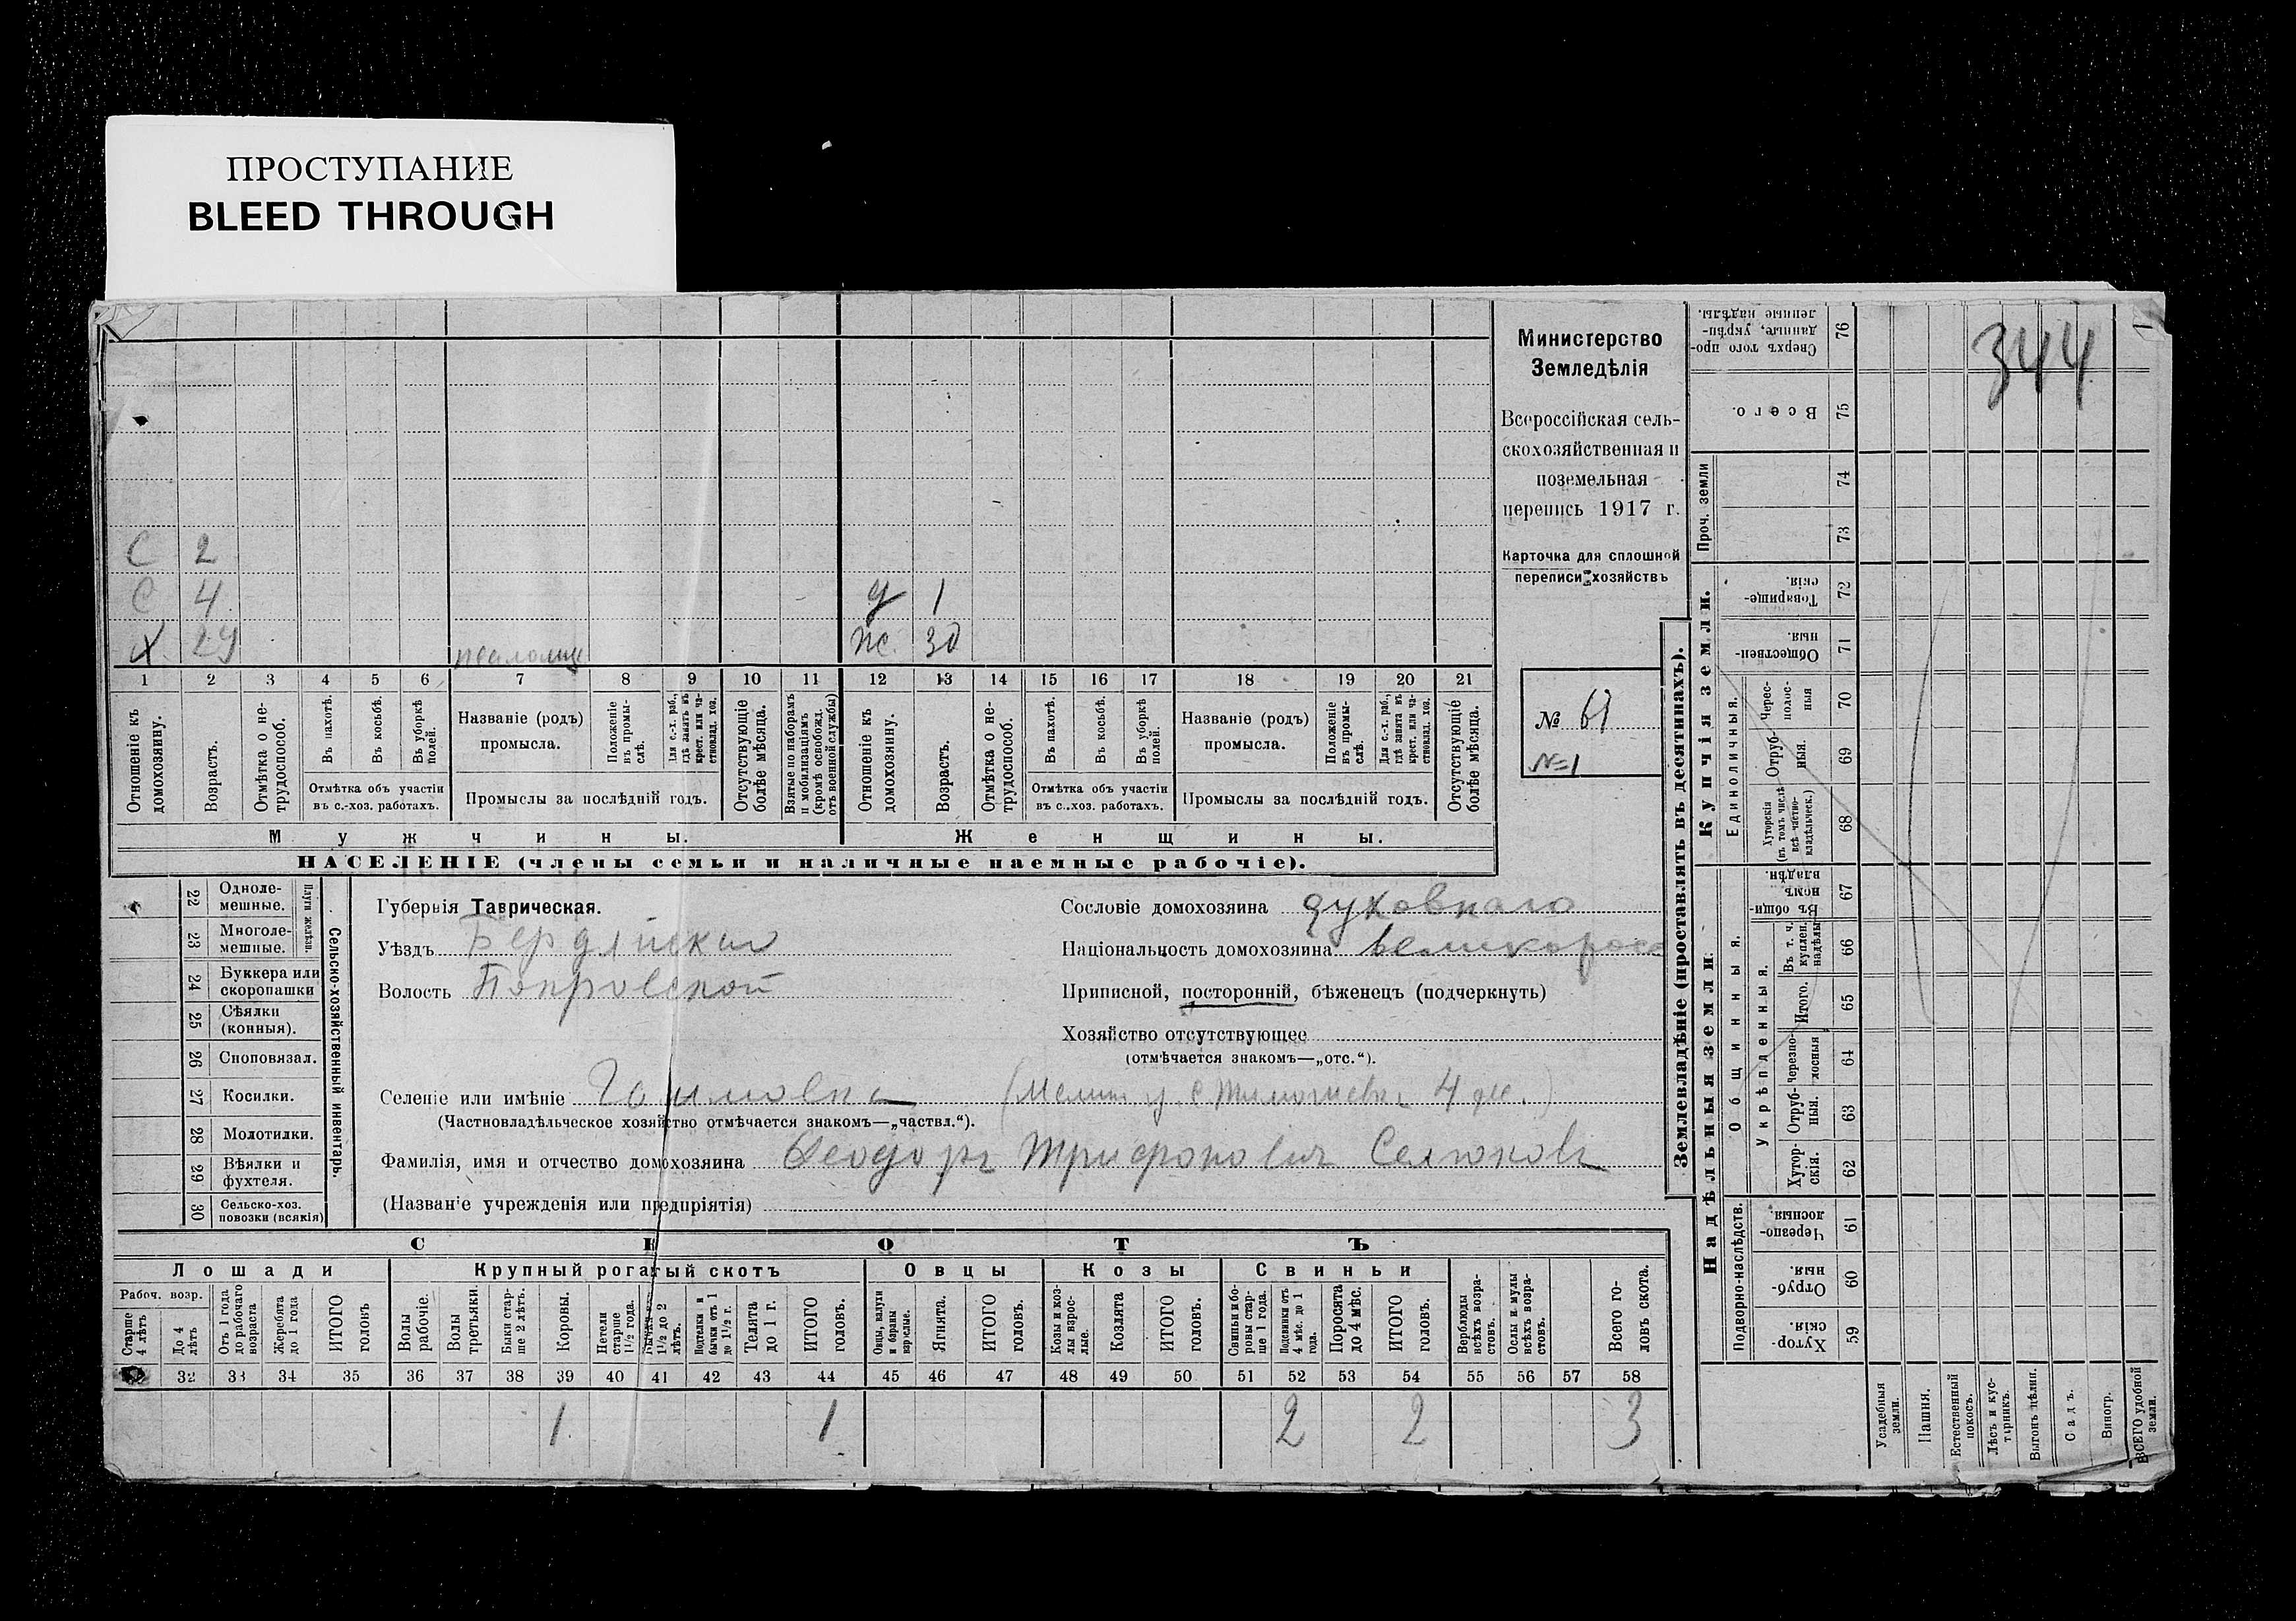 ПРОСТУПАНИЕ
BLEED THROUGH
С 2
С 4
Х 29 псаломщ
д 1
ж 30
1 2 3 4 5 6 7 8 9 10 11 12 13 14 15 16 17 18 19 20 21
Отношеніе къ домохозяину.
Возрастъ.
Отмѣтка о не-трудоспособ.
Въ пахотѣ.
Въ косьбѣ.
Въ уборкѣ полей.
Отмѣтка объ участіи
въ с.-хоз. работахъ.
Названіе (родъ)
промысла.
Положеніе въ промы-слѣ.
Для с.-х. раб., гдѣ занятъ въ крест. или ча-стновлад. хоз.
Промыслы за послѣдній годъ.
Отсутствующіе болѣе мѣсяца.
Взятые по наборамъ и мобилизаціямъ (кромѣ освобожд. отъ военной службы)
Отношеніе къ домохозяину.
Возрастъ.
Отмѣтка о не-трудоспособ.
Въ пахотѣ.
Въ косьбѣ.
Въ уборкѣ полей.
Отмѣтка объ участіи
въ с.-хоз. работахъ.
Названіе (родъ)
промысла.
Положеніе въ промы-слѣ.
Для с.-х. раб., гдѣ занята въ крест. или ча-стновлад. хоз.
Промыслы за послѣдній годъ.
Отсутствующіе болѣе мѣсяца.
Мужчины.
Женщины.
НАСЕЛЕНІЕ (члены семьи и наличные наемные рабочіе).
Министерство
Земледѣлія
Всероссійская сель-
скохозяйственная и
поземельная
перепись 1917 г.
Карточка для сплошной
переписи хозяйствъ
№ 61
№ 1
22 Одноле-мешные.
23 Многоле-мешные.
Плуги желѣзн.
24 Буккера или скоропашки
25 Сѣялки (конныя).
26 Сноповязал.
27 Косилки.
28 Молотилки.
29 Вѣялки и фухтеля.
30 Сельско-хоз. повозки (всякія)
Сельско-хозяйственный инвентарь.
Губернія Таврическая.
Уѣздъ Бердянский
Волость Покровской
Сословіе домохозяина духовнаго
Національность домохозяина великоросс
Приписной, посторонній, бѣженецъ (подчеркнуть)
Хозяйство отсутствующее
(отмѣчается знакомъ—„отс.“).
Селеніе или имѣніе 4 дк.)
(Частновладѣльческое хозяйство отмѣчается знакомъ—„частвл.“).
Фамилія, имя и отчество домохозяина Ѳеодоръ Трифоновичъ Селюковъ
(Названіе учрежденія или предпріятія)
СКОТЪ
Лошади
Крупный рогатый скотъ
Овцы
Козы
Свиньи
Рабоч. возр.
Старше 4 лѣтъ
До 4 лѣтъ
Отъ 1 года до рабочаго возраста
Жеребята до 1 года
ИТОГО головъ
Волы рабочіе.
Волы третьяки.
Быки стар-ше 2 лѣтъ.
Коровы.
Нетели старше 1½ года.
Бычки 1½ до 2 лѣтъ.
Подтелки и бычки отъ 1 до 1½ г.
Телята до 1 г.
ИТОГО головъ.
Овцы, валухи и бараны взрослые.
Ягнята.
ИТОГО головъ.
Козы и коз-лы взрос-лые.
Козлята
ИТОГО головъ.
Свиньи и бо-ровы стар-ше 1 года.
Подсвинки отъ 4 мѣс. до 1 года.
Поросята до 4 мѣс.
ИТОГО головъ.
Верблюды всѣхъ возра-стовъ.
Ослы и мулы всѣхъ возра-стовъ.
Всего го-ловъ скота.
32 33 34 35 36 37 38 39 40 41 42 43 44 45 46 47 48 49 50 51 52 53 54 55 56 57 58
1 1 2 2 3
344
Землевладѣніе (проставлять въ десятинахъ).
Сверхъ того про-данные, укрѣп-ленные надѣлы. 76
Всего. 75
Проч. земли 74
73
Купчія земли.
Товарище-скія. 72
Обществен-ныя 71
Единоличныя.
Черес-полос-ныя 70
Отруб-ныя. 69
Хуторскія (въ томъ числѣ всѣ частно-владѣльческ.) 68
Надѣльныя земли.
Общинныя.
Въ общин-номъ владѣн. 67
Укрѣпленныя.
Въ т. ч. куплен. надѣлы 66
Итого. 65
Черезпо-лосныя 64
Отруб-ныя. 63
Хутор-скія. 62
Подворно-наслѣдств.
Черезпо-лосныя. 61
Отруб-ныя. 60
Хутор-скія. 59
Усадебныя земли.
Пашня.
Естественный покосъ.
Лѣсъ и кус-тарникъ.
Выгонъ цѣлин.
Садъ.
Виногр.
ВСЕГО удобной земли.